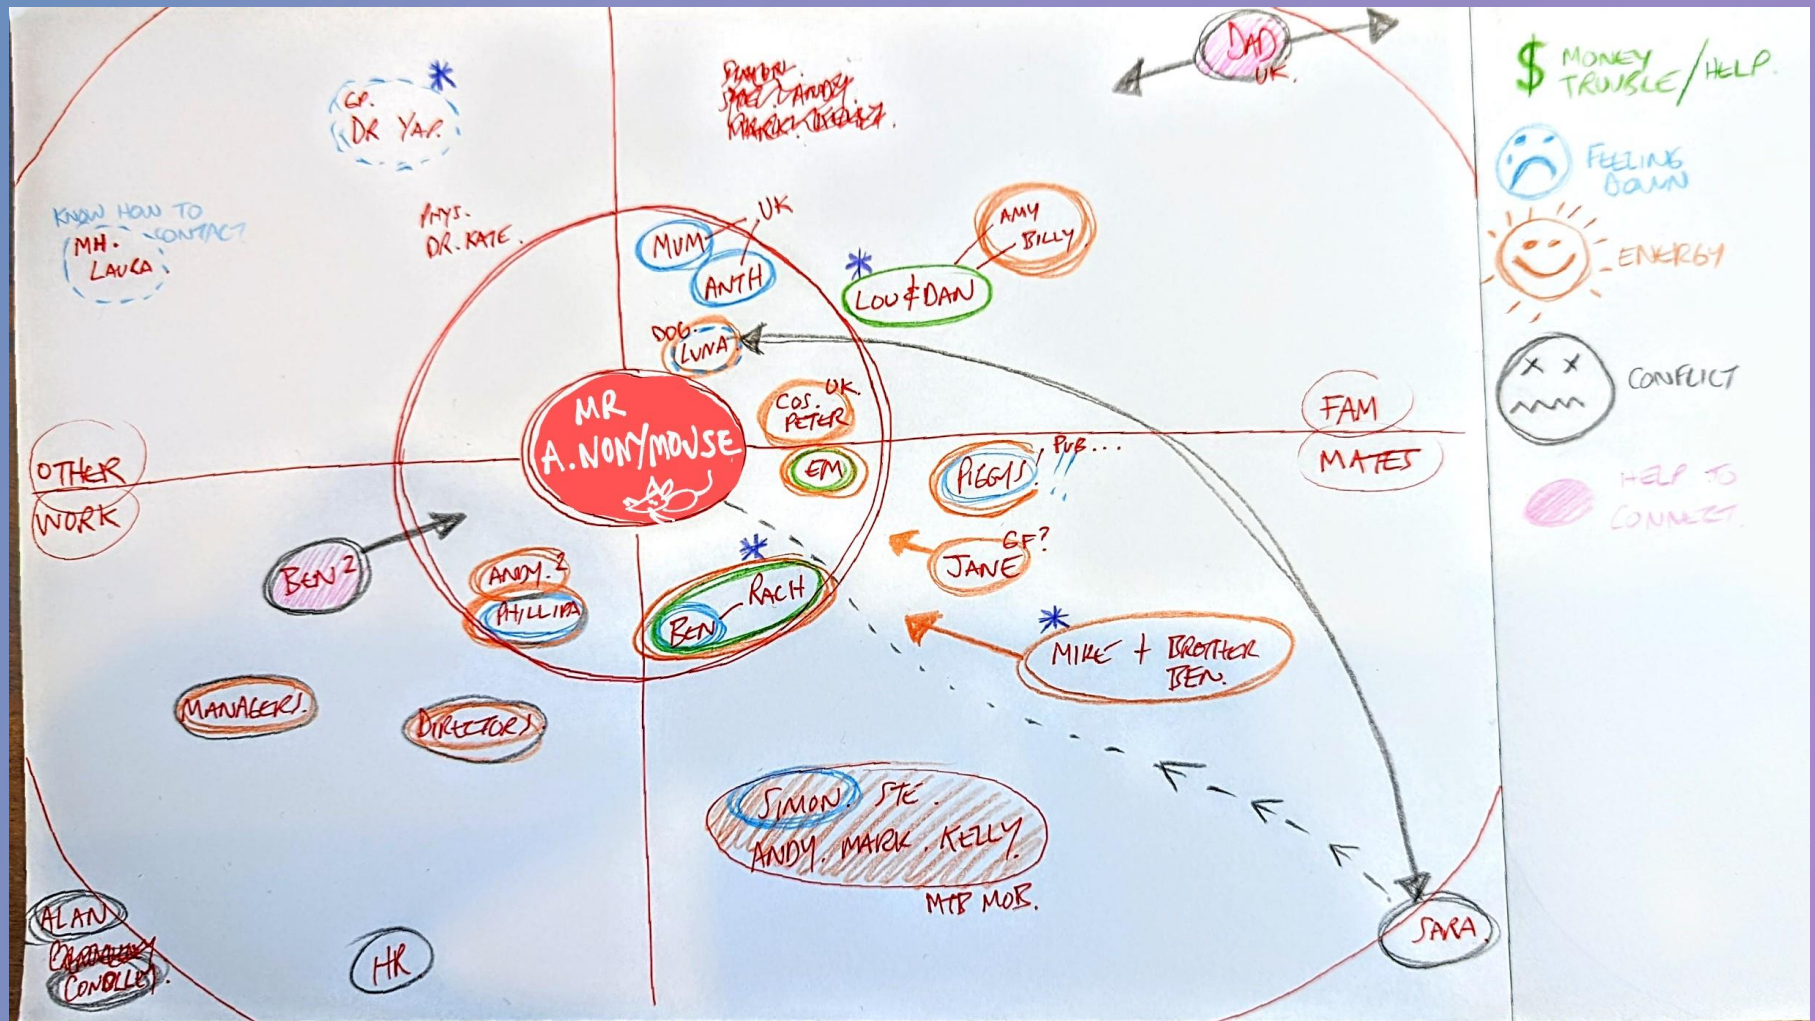 DAD
UK.
GP.
DR YAP.
KNOW HOW TO
CONTACT
MH.
LAURA
PHYS.
DR. KATE.
UK
MUM
ANTH
AMY
BILLY
LOU & DAN
DOG
LUNA
COS. UK.
PETER
MR
A. NONYMOUSE
EM
FAM
MATES
OTHER
WORK
PIGGYS! PUB...
!!
GF?
JANE
BEN 2
ANDY. 2
PHILLIPA
RACH
BEN
MIKE + BROTHER
BEN.
MANAGERS.
DIRECTORS
SIMON. STE.
ANDY. MARK. KELLY.
MTB MOB.
ALAN
HR
SARA
$ MONEY
TROUBLE/HELP.
FEELING
DOWN
ENERGY
CONFLICT
HELP TO
CONNECT.